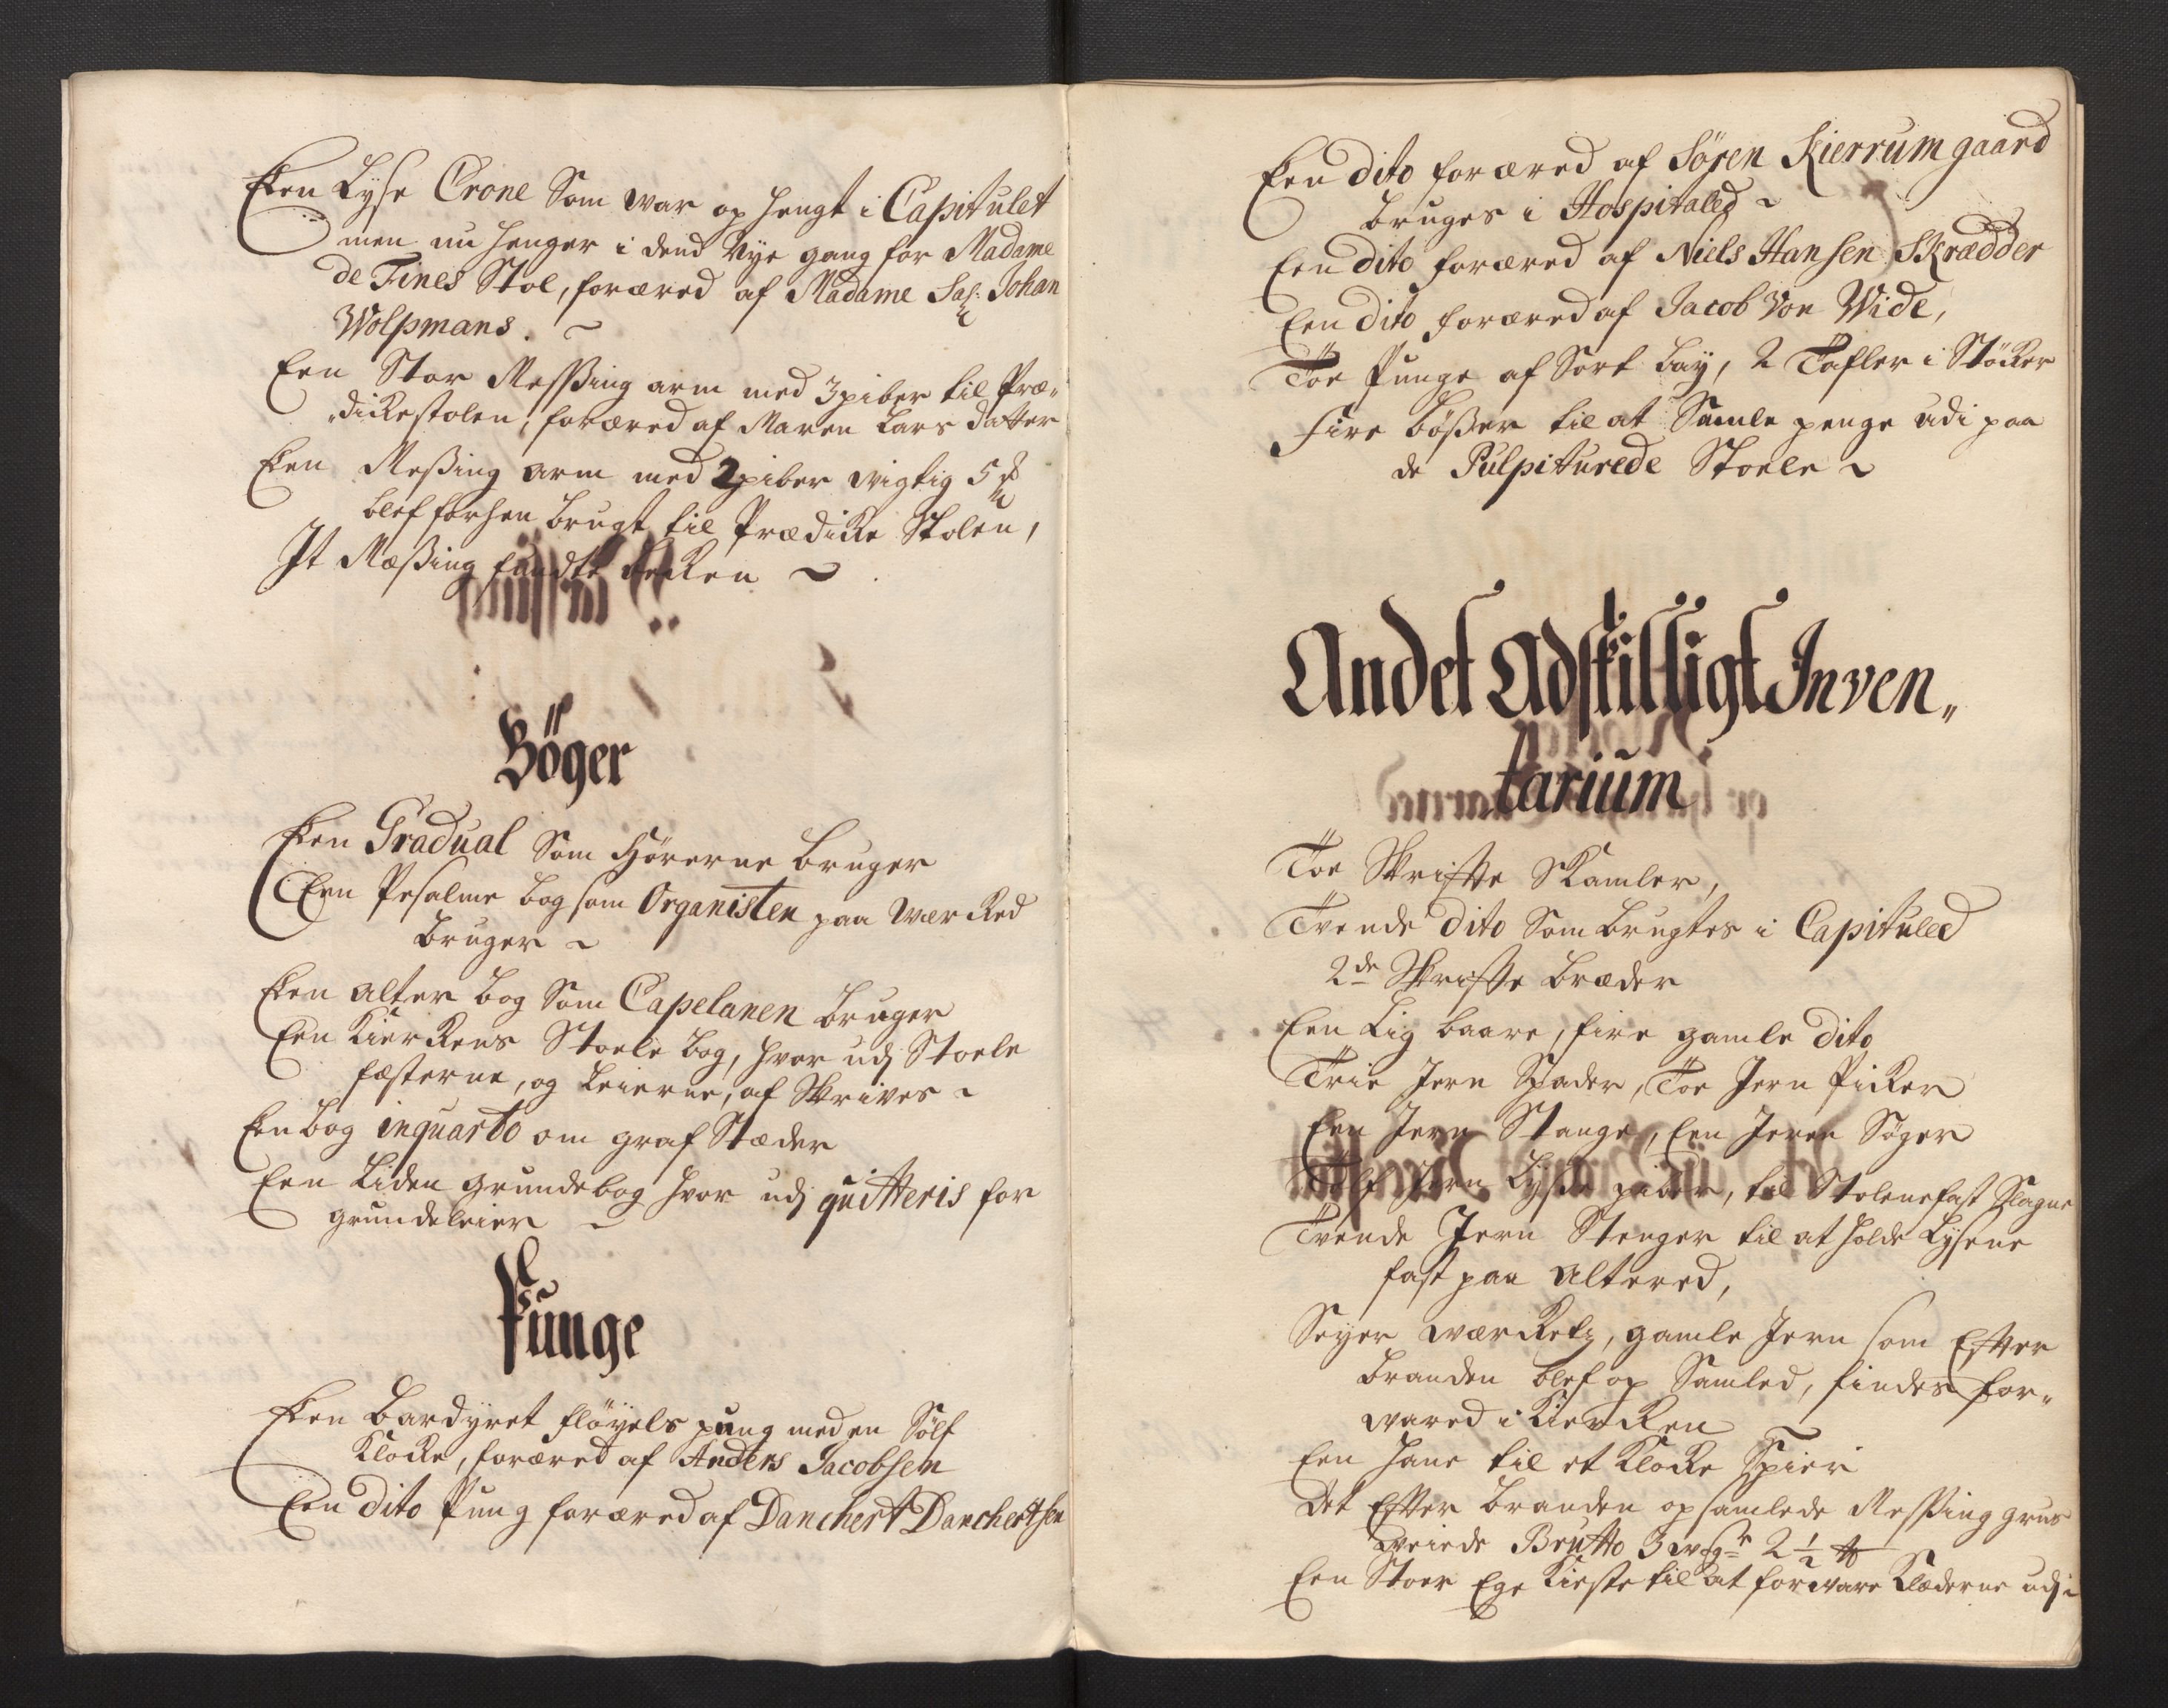 Een Lyse Crone Som war op hengt i Capitulet
men nu henger i dend Nye gang for Madame
de Fines Stol, foræred af Madame Sal: Johan
Wolpmans.
Een Stor Messing arm med 3 piber til Præ„
„dickestolen, foræred af Maren Lars datter
Een Messing arm med 2 piber wigtig 5 ℔
blef forhen brugt til Prædicke Stolen,
It Messing fundte Becken
Böger
Een Gradual Som Hörerne bruger
Een Psalme bog som Organisten paa Wercked
bruger
Een alter bog Som Capelanen bruger
Een Kierckens Stoele bog, hvor udj Stoele
fæsterne, og Leierne, af Skrives
Een bog inquarto om graf Stæder
Een Liden grundebog hvor udj quitteris for
grundeleier
Punge
Een bardyret flöyels pung med en Sölf
Klocke, foræret af Anders Jacobsen
Een dito Pung foræred af Danchert Danchertsen
Een dito foræred af Sören Kierrumgaard
bruges i Hospitaled
Een dito foræred af Niels Hansen Skrædder
Een dito foræred af Jacob Von Wide,
Toe Punge af Sort bay, 2 Tafler i Stöcker
Fire bößer til at Samle penge udi paa
de Pulpiturede Stoele
Andet Adskilligt Inven„
tarium
Toe Skrifte Skamler,
Tvende dito Som brugtes i Capituled
2de Skrifte bræder
Een Lig baare, fire gamle dito
Trie Jern Spader, Toe Jern Picker
Een Jern Stange, Een Jeren Söger
Tolf Jern Lyse piber, til Stolene fast Slagne
Tvende Jern Stenger til at holde Lysene
fast paa Altered,
Seyer wærcketz, gamle Jern som Efter
branden blef op Samled, findes for„
wared i Kiercken
Een hane til et Klocke Spier
Det Efter branden opsamlede Messing grus
weiede Brutto 3 wogr 2½ ℔
Een Stoer Ege Kieste til at forware Klæderne udj